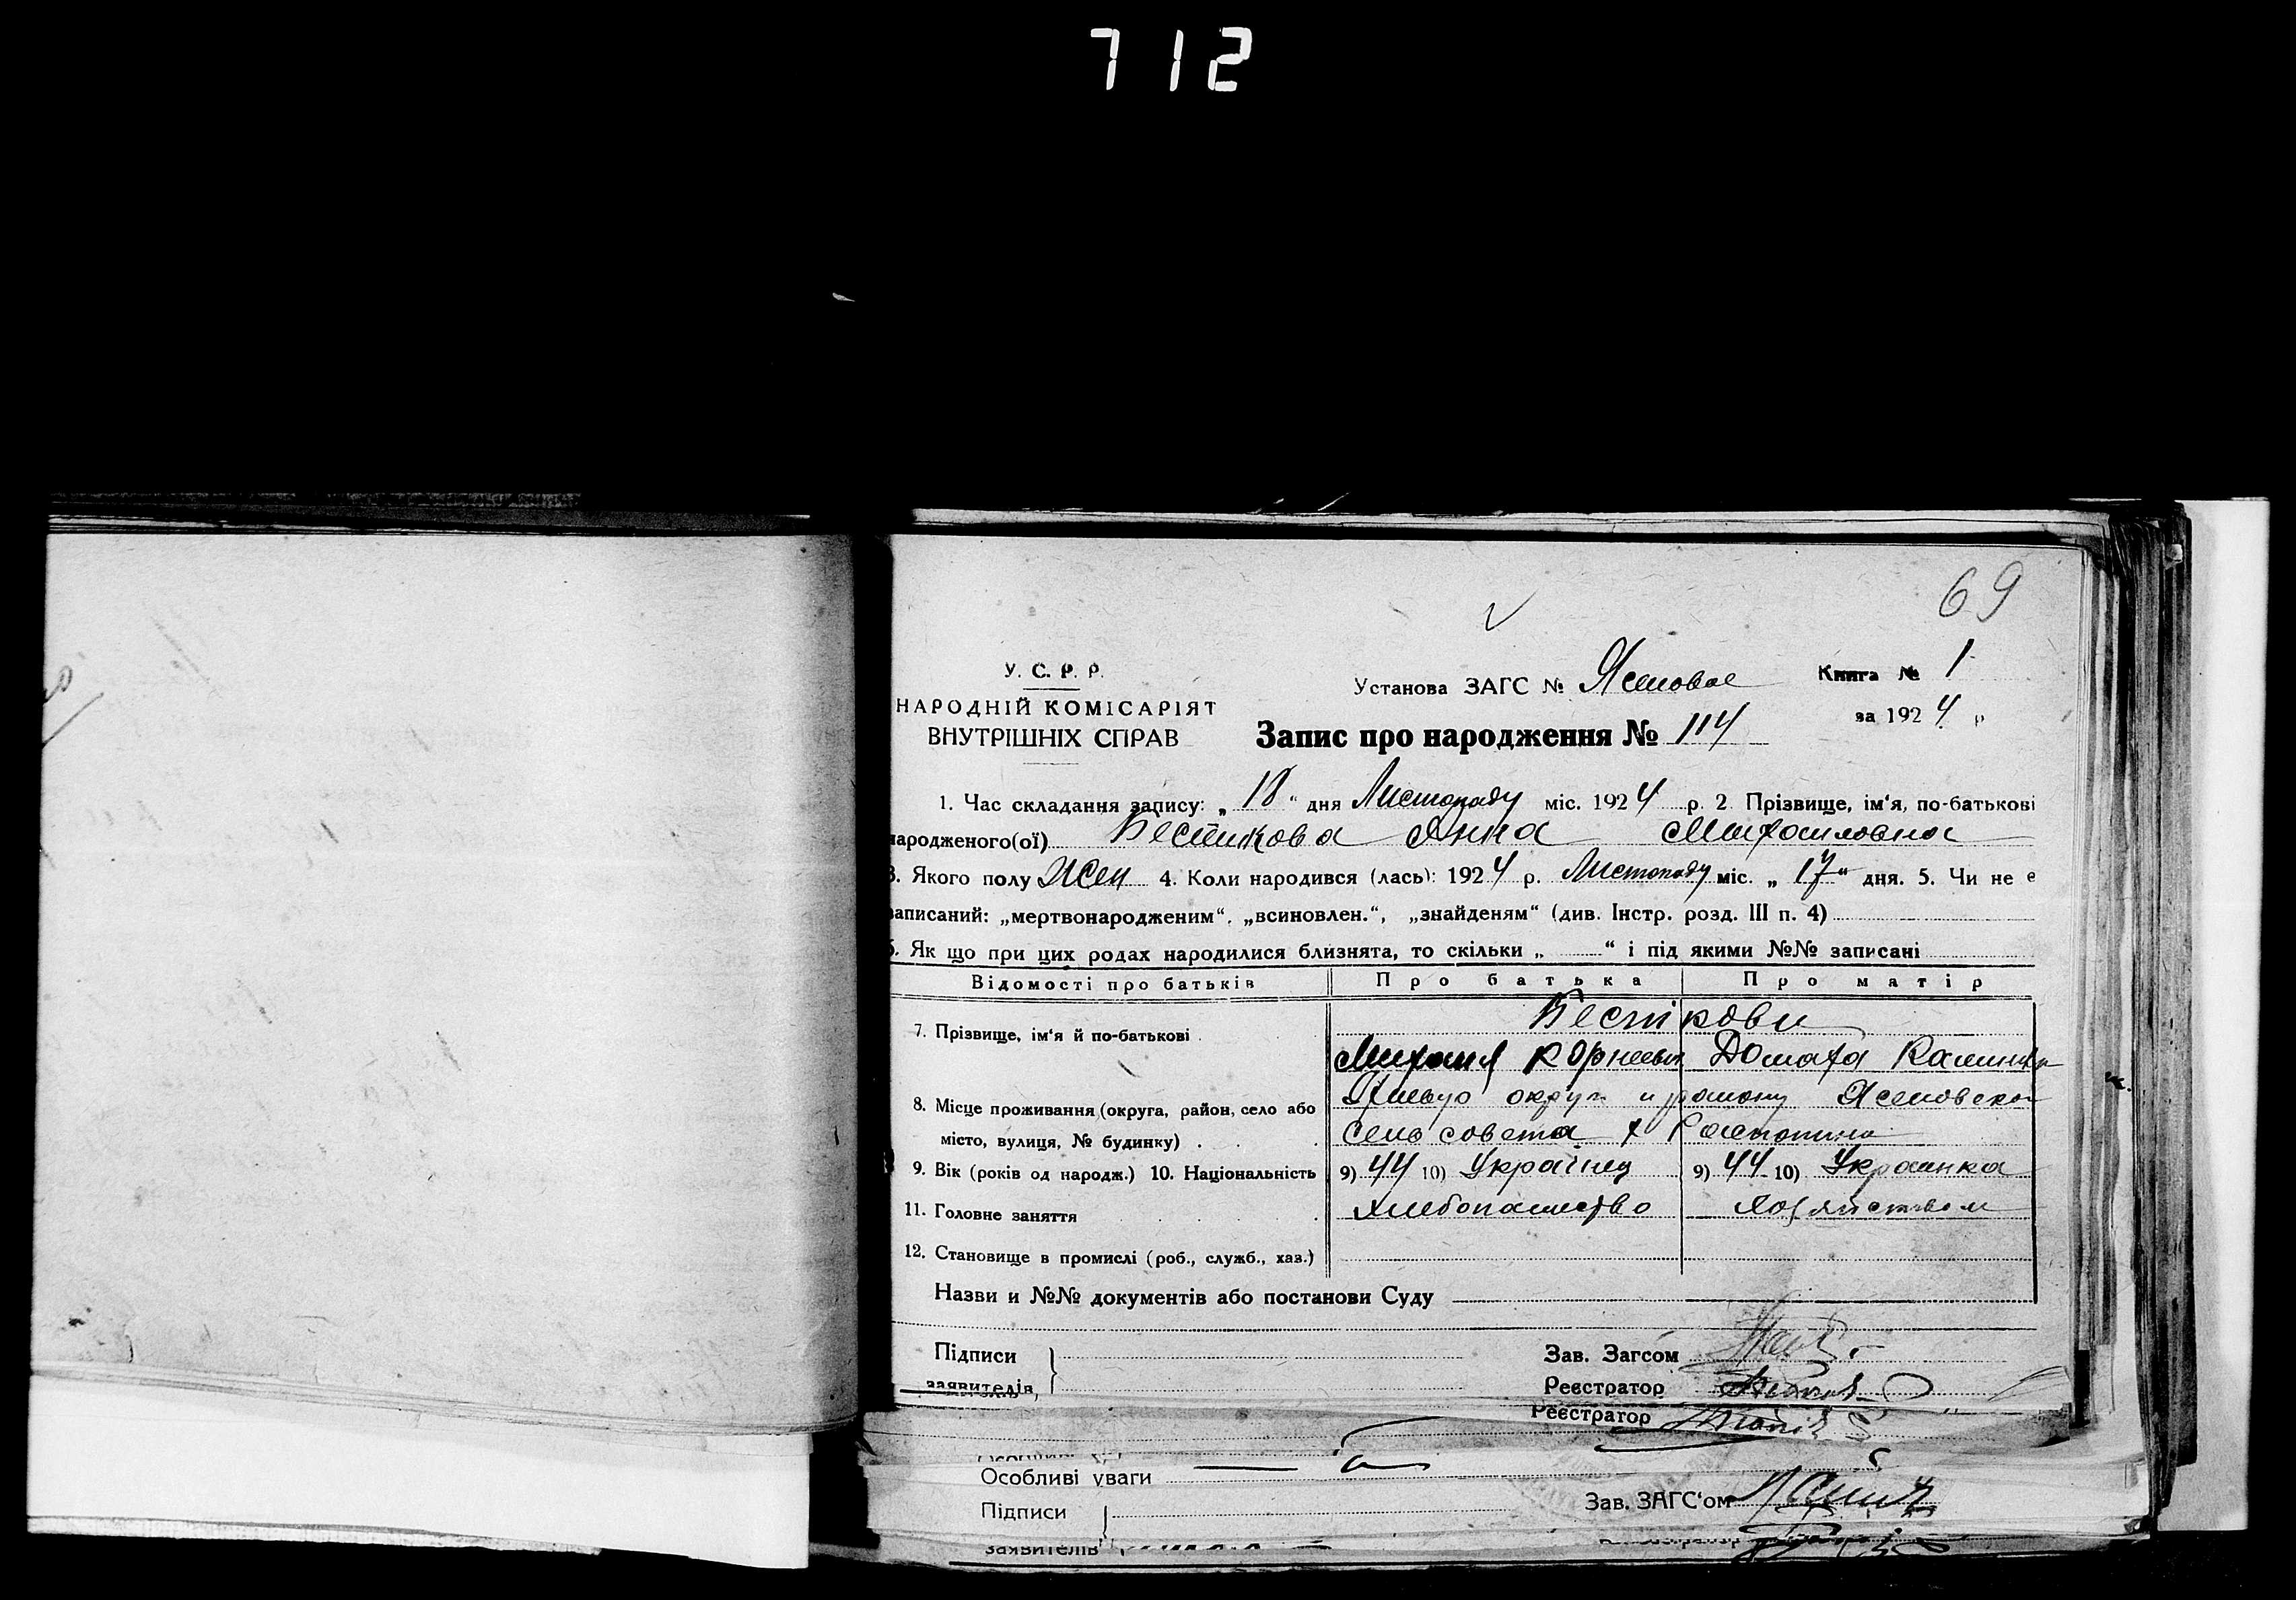 712
69
У. С. Р. Р.
НАРОДНІЙ КОМІСАРІЯТ
ВНУТРІШНІХ СПРАВ
Установа ЗАГС № Ясеновое
Книга № 1
за 1924 р
Запис про народження № 114
1. Час складання запису: „18“ дня Листопаду міс. 1924 р. 2 Прізвище, ім‘я, по-батькові
народженого(ої) Бестикова Анна Михайловна
3. Якого полу Жен 4. Коли народився (лась): 1924 р. Листопаду міс. „17“ дня. 5. Чи не е
записаний: „мертвонародженим“, „всиновлен.“, „знайденям“ (див. Інстр. розд. III п. 4)
6. Як що при цих родах народилися близнята, то скільки „ “ і під якими №№ записані
Відомості про батьків Про батька Про матір
7. Прізвище, ім‘я й по-батькові
Михаил Корнеевич Домаха
8. Місце проживання (округа, район, село або округи и району
місто, вулиця, № будинку) сель совета х
9. Вік (років од народж.) 10. Національність 9) 44 10) Українец 9) 44 10) Украинка
11. Головне заняття хлебопашество
12. Становище в промислі (роб., служб., хаз.)
Назви и №№ документів або постанови Суду
Підписи
заявителів,
Зав. Загсом
Реєстратор
Реєстратор
Особливі уваги
Підписи
Зав. ЗАГС‘ом
заявителів